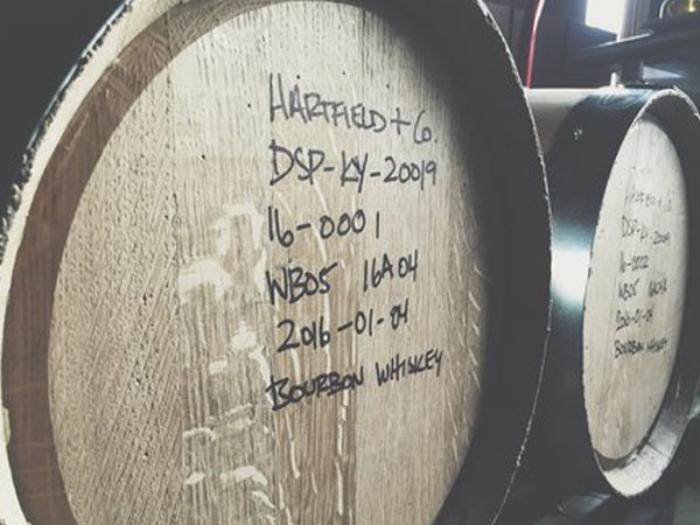 HARTFIELD + Co.
DSP-KY-20019
16-0001
WB05 16A04
2016-01-04
BOURBON WHISKEY
DSP-KY-20019
16-0002
WB05
2016-01-04
BOURBON WHISKEY